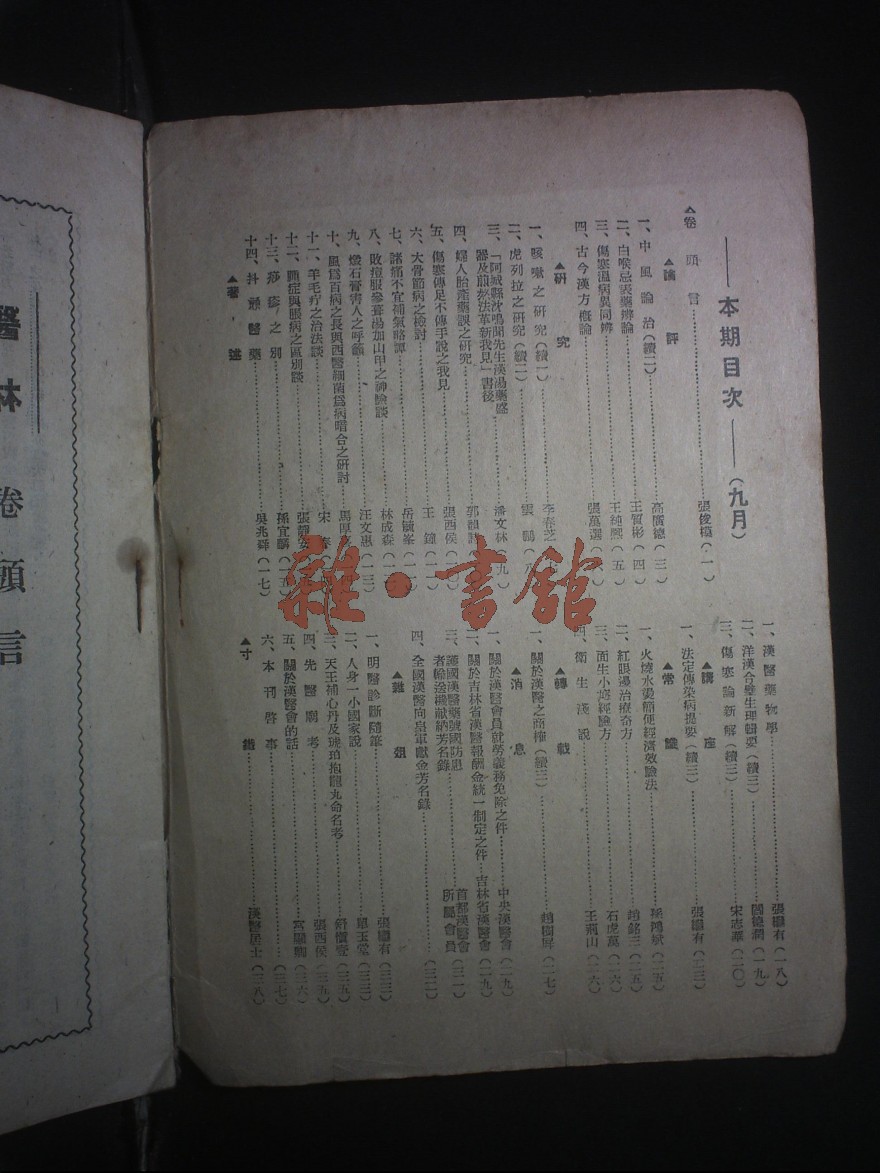 本期目次（九月）
△卷頭言……張俊模（一）
▲論評
一、中風論治（續二）……高廣德（三）
二、白喉忌表藥辨論……王質彬（四）
三、傷寒溫病異同辨……王純熙（五）
四、古今漢方概論……張萬選
▲研究
一、咳嗽之研究（續一）……李春芝
二、虎列拉之研究（續二）……雲鶴（八）
三、「阿城縣沈鳴閣先生漢湯藥盛器及煎熬法革新我見」書後……潘文林（九）
四、婦人胎產藥誤之研究……郭
五、傷寒傳足不傳手說之我見……張西侯（一〇）
六、大骨節病之檢討……王鐘（一一）
七、諸痛不宜補氣略譚……岳毓峯
八、敗痘服參葺湯加山甲之神驗談……林成森
九、煅石膏害人之呼籲……汪文惠（一三）
十、風為百病之長與西醫細菌為病暗合之研討……馬厚
十一、羊毛疔之治法談……宋
十二、腫症與脹病之區別談……張靜
十三、痧疹之別……孫宜麟（一五）
十四、抖翻醫藥……吳兆舜（一七）
▲著述
一、漢醫藥物學……張繼有（一八）
二、洋漢合璧生理輯要（續三）……閻德潤（一九）
三、傷寒論新解（續三）……宋志華（二〇）
▲講座
一、法定傳染病提要（續三）……張繼有（二三）
▲常識
一、火燒水燙簡便經濟效驗法……孫鴻斌（二五）
二、紅眼湯治療奇方……趙銘三（二五）
三、面生小疙經驗方……石虎萬（二六）
四、衛生淺說……王爾山（二六）
▲轉載
一、關於漢醫之商榷（續三）……趙樹屏（二七）
▲消息
一、關於漢醫會員就勞義務免除之件……中央漢醫會（二九）
二、關於吉林省漢醫報酬金統一制定之件……吉林省漢醫會（二九）
三、護國漢醫藥號國防患者輸送機獻納芳名錄……首都漢醫會所屬會員（三一）
四、全國漢醫向皇軍獻金芳名錄……（三二）
▲雜俎
一、明醫診斷隨筆……張繼有（三三）
二、人身一小國家說……單玉堂（三三）
三、天王補心丹及琥珀抱龍丸命名考……（三五）
四、先醫廟考……張西侯（三五）
五、關於漢醫會的話……（三六）
六、本刊啓事……（三七）
▲寸鐵……漢醫居士（三八）
醫林卷頭言
雜·書舘